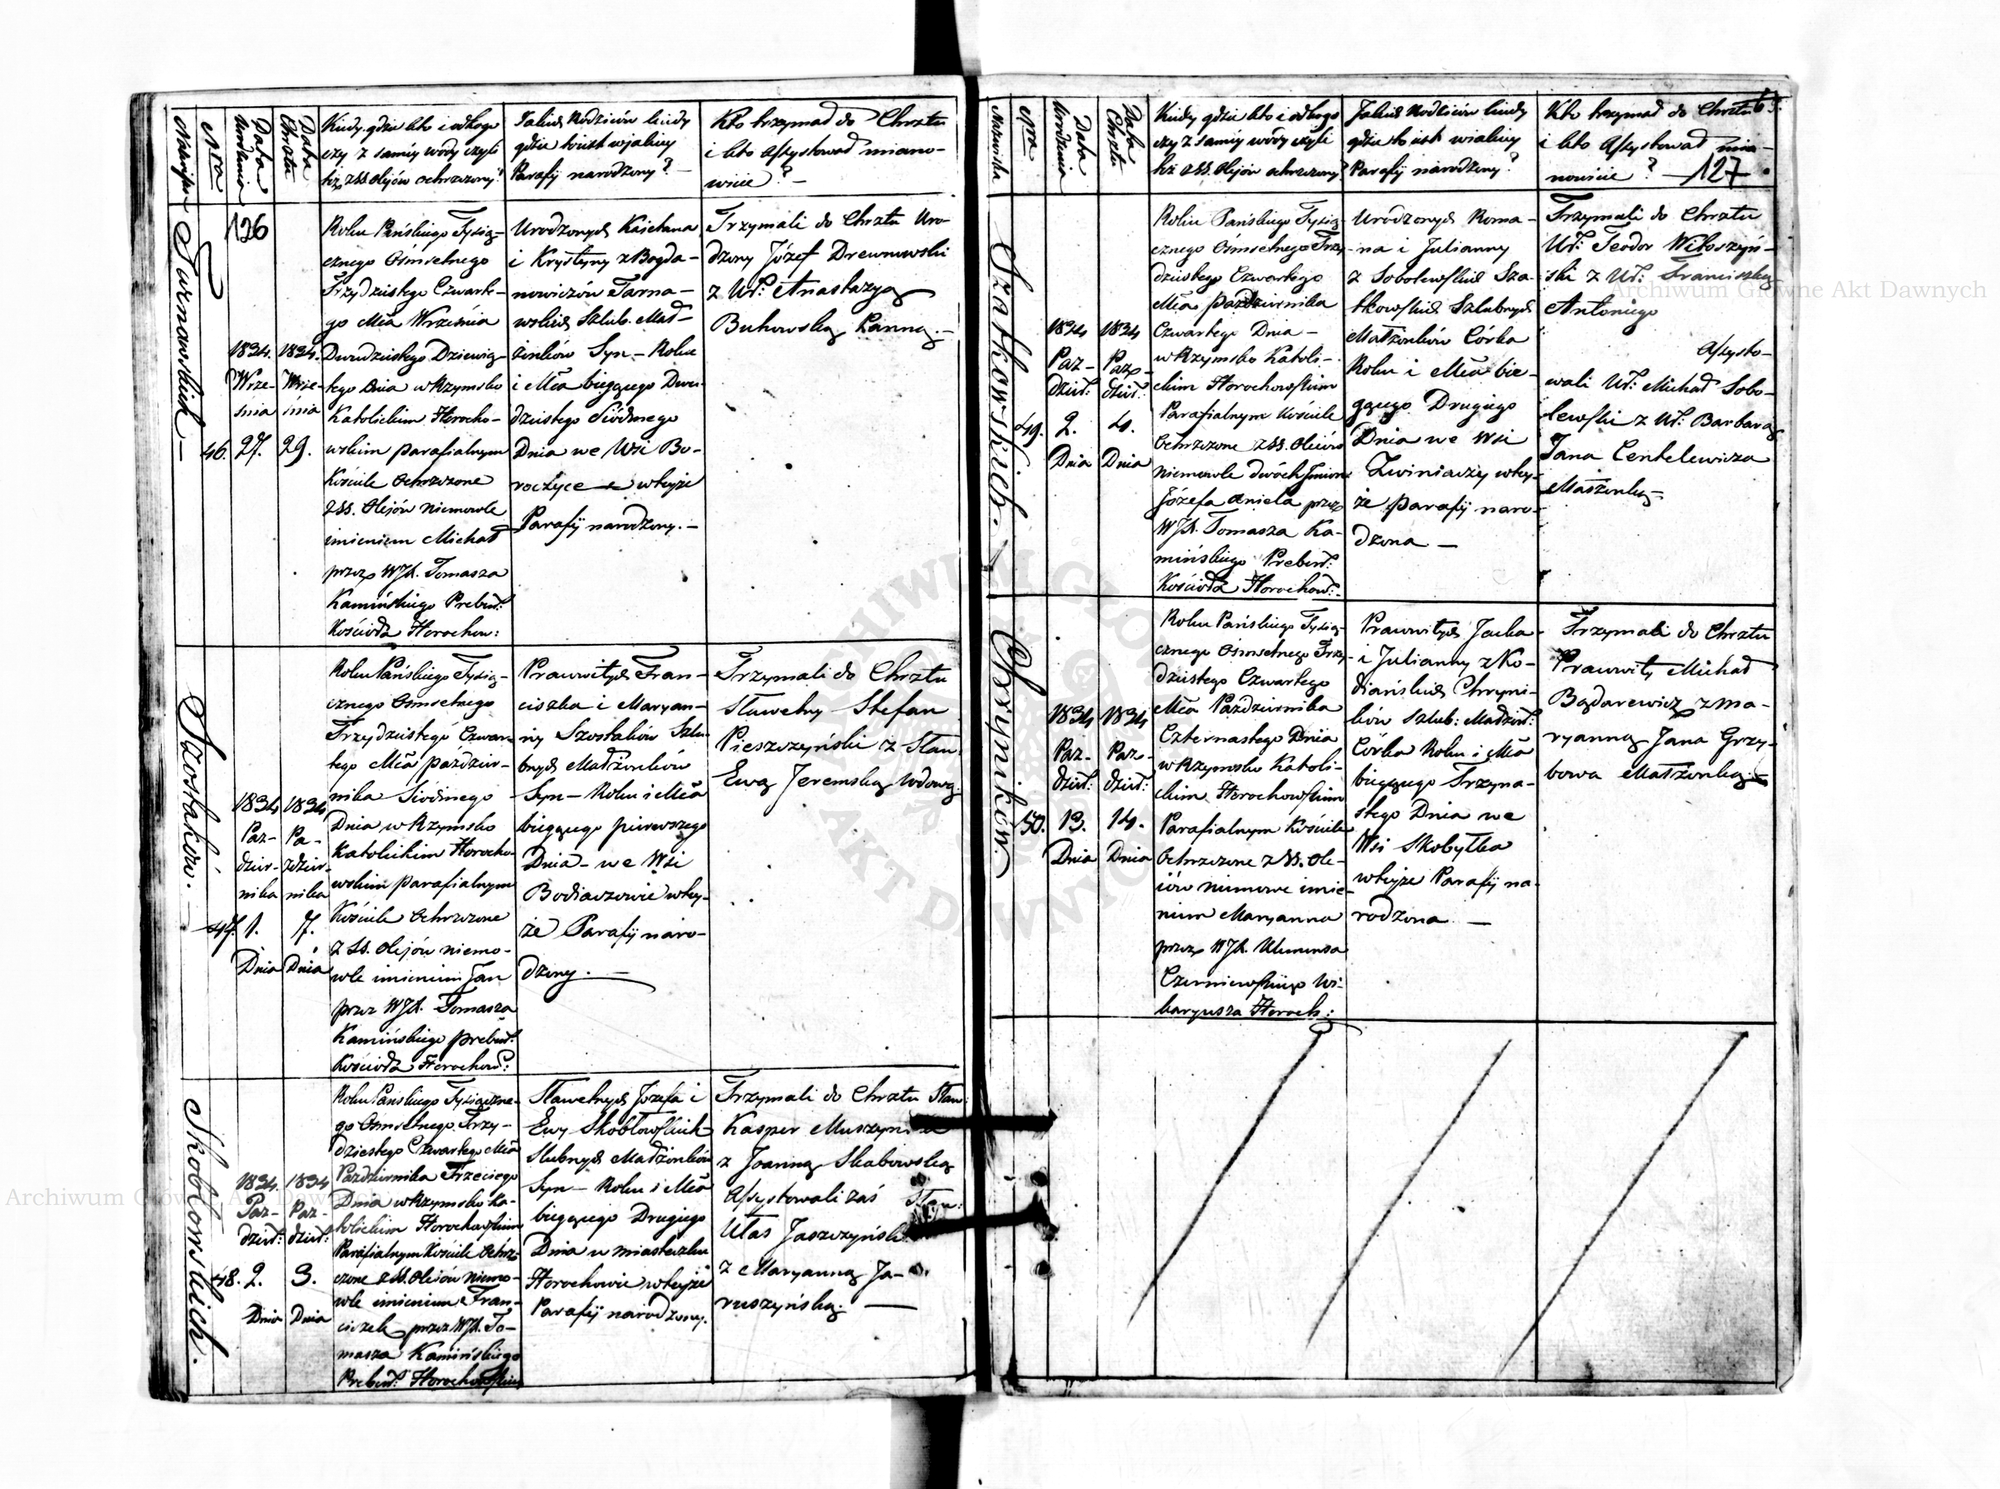 Nazwisko
Nra
Data Urodzenia
Data Chrztu
Kiedy gdzie kto i od kogo
czy z samey wody czyli
też z SS. Olejów ochrzczony?
Jakich Rodziców kiedy
gdzie to iest w jakiey
Parafij narodzony? —
Kto trzymał do Chrztu
i kto Assystował miano-
wicie? —
126
Turnawskich —
46.
1834.
Wrze-
śnia
27.
1834.
Wrze-
śnia
29.
Roku Pańskiego Tysią-
cznego Ośmsetnego
Trzydziestego Czwarte-
go Mca Września
Dwudziestego Dziewią-
tego Dnia w Rzymsko
Katolickim Horocho-
wskim parafialnym
Kościele Ochrzczone
z SS. Olejów niemowle
imieniem Michał
przez WJX. Tomasza
Kamińskiego Prebend:
Kościoła Horochow:
Urodzonych Kajetana
i Krystyny z Bogda-
nowiczów Tarna-
wskich Szlub. Mał-
żonków Syn — Roku
i Mca bieżącego Dwu-
dziestego Siódmego
Dnia we Wsi Bo-
roczyce w teyże
Parafij narodzony. —
Trzymali do Chrztu Uro-
dzony Józef Drewnowski
z Ur: Anastazyą
Bukowską Panną. —
Szostaków. —
47.
1834
Paź-
dzier-
nika
1.
Dnia
1834
Pa-
ździer-
nika
7.
Dnia
Roku Pańskiego Tysią-
cznego Ośmsetnego
Trzydziestego Czwar-
tego Mca paździer-
nika Siódmego
Dnia w Rzymsko
Katolickim Horocho-
wskim parafialnym
Kościele Ochrzczone
z SS. Olejów niemo-
wle imieniem Jan
przez WJX. Tomasza
Kamińskiego prebend:
Kościoła Horochow:
Prawwitych Fran-
ciszka i Maryan-
ny Szostaków Szlu-
bnych Małżonków
Syn — Roku i Mca
bieżącego pierwszego
Dnia — we Wsi
Bodiaczowie w tey-
że Parafij naro-
dzony. —
Trzymali do Chrztu
Sławetny Stefan
Pieszczyński z Sław.
Ewą Jeremską Wdową.
Skobłowskich.
48.
1834.
Paź-
dzier:
2.
Dnia
1834
Paź-
dzier:
3.
Dnia
Roku Pańskiego Tysiączne-
go Ośmsetnego Trzy-
dziestego Czwartego Mca
Października Trzeciego
Dnia w Rzymsko Ka-
tolickim Horochowskim
Parafialnym Kościele Ochrz-
czone z SS. Olejów niemo-
wle imieniem Fran-
ciszek przez WJX. To-
masza Kamińskiego
Prebend: Horochowskiego
Sławetnych Józefa i
Ewy Skobłowskich
Slubnych Małżonków
Syn — Roku i Mca
bieżącego Drugiego
Dnia w miasteczku
Horochowie w teyże
Parafij narodzony.
Trzymali do Chrztu Sław:
Kasper Muszyn
z Joanną Skabowską
Assystowali zaś Sław:
Ułas Jaszczyński
z Maryanną Ja-
ruszyńską. —
Nazwiska
Nra
Data Urodzenia
Data Chrztu
Kiedy gdzie kto i od kogo
czy z samey wody czyli
też z SS. Olejów ochrzczony?
Jakich Rodziców kiedy
gdzie to iest w iakiey
Parafij narodzony?
Kto trzymał do Chrztu
i kto Assystował mia-
nowicie? —
63.
127
Szatkowskich.
49.
1834
Paź-
dzier:
2.
Dnia
1834
Paź-
dzier:
4.
Dnia
Roku Pańskiego Tysią-
cznego Ośmsetnego Trzy-
dziestego Czwartego
Mca Października
Czwartego Dnia —
w Rzymsko Katoli-
ckim Horochowskim
Parafialnym Kościele
Ochrzczone z SS. Olejów
niemowle dwóch Imion
Józefa Aniela przez
WJX. Tomasza Ka-
mińskiego Prebend:
Kościoła Horochow:
Urodzonych Roma-
na i Julianny
z Sobolewskich Sza-
tkowskich Szlubnych
Małżonków Córka
Roku i Mca bie-
żącego Drugiego
Dnia we Wsi
Zwiniaczy w tey-
że parafij naro-
dzona —
Trzymali do Chrztu
Ur: Teodor Witoszyń-
ski z Ur: Franciszką
Antoniego
Assysto-
wali Ur: Michał Sobo-
lewski z Ur: Barbarą
Jana Centelewicza
Małżonką —
Chryników.
50.
1834
Paź-
dzier:
13.
Dnia
1834
Paź-
dzier:
14.
Dnia
Roku Pańskiego Tysią-
cznego Ośmsetnego Trzy-
dziestego Czwartego
Mca Października
Czternastego Dnia
w Rzymsko Katoli-
ckim Horochowskim
Parafialnym Kościele
Ochrzczone z SS. Ole-
jów niemowe imie-
niem Maryanna
przez WJX. Klemensa
Czerniewskiego Wi-
karyusza Horoch:
Prawwitych Jacka
i Julianny z Ko-
diańskich Chryni-
ków Szlub: Małżon:
Córka Roku i Mca
bieżącego Trzyna-
stego Dnia we
Wsi Skobyłka
w teyże Parafij na-
rodzona —
Trzymali do Chrztu
Prawwity Michał
Bądarewicz z Ma-
ryanną Jana Grzy-
bowa Małżonką —
Archiwum Główne Akt Dawnych
Archiwum Główne Akt Dawnych
ARCHIWUM GŁÓWNE AKT DAWNYCH